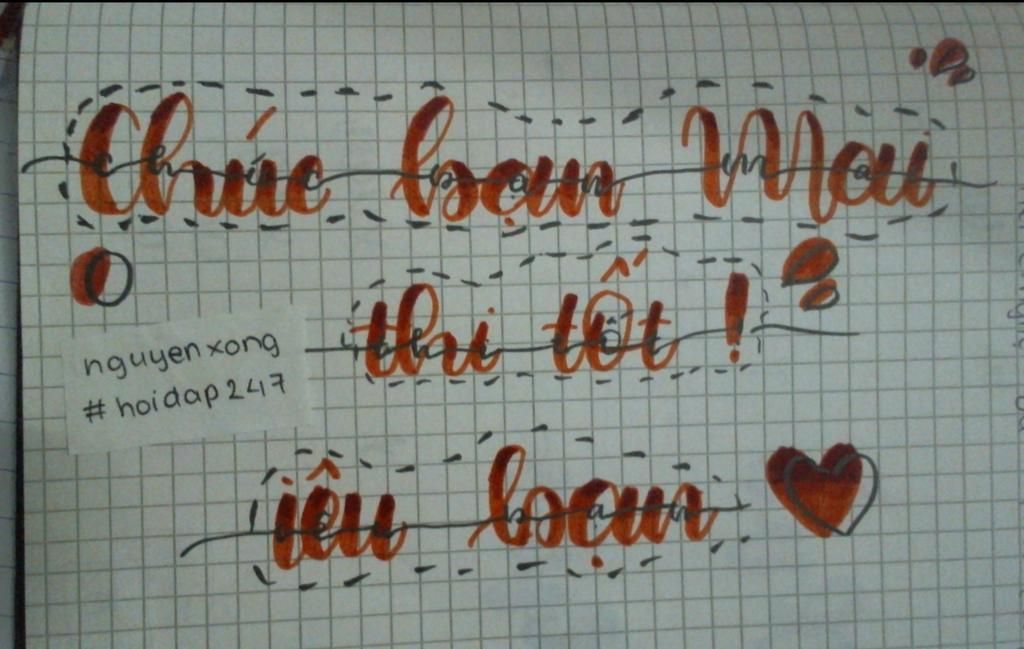 Chúc bạn Mai
thi tốt !
nguyenxong
#hoidap247
iêu bạn